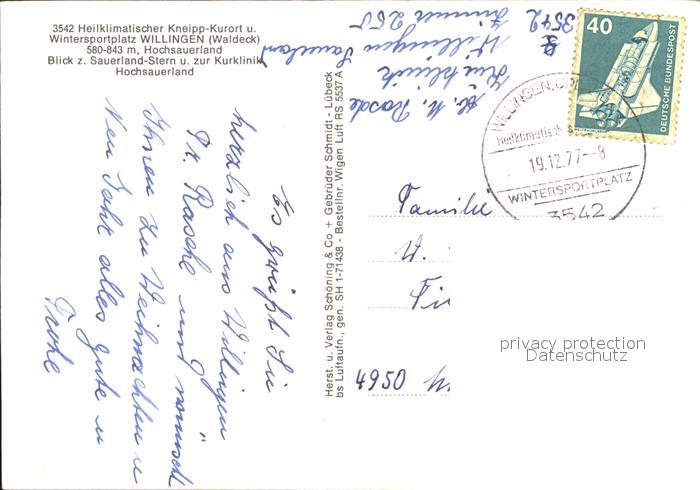 3542 Heilklimatischer Kneipp-Kurort u.
Wintersportplatz WILLINGEN (Waldeck)
580-843 m, Hochsauerland
Blick z. Sauerland-Stern u. zur Kurklinik
Hochsauerland
Es grüßt Sie
herzlich aus Willingen
Dr. Rasche und wünscht
Ihnen zu Weihnachten u
Neu Jahr alles gute u
Frohe
Herst. u. Verlag Schöning & Co + Gebrüder Schmidt - Lübeck
bs Luftaufn., gen. SH 1-71438 - Bestellnr. Wigen Luft RS 5537 A
Kurklinik
Willingen Sauerland
3542
Zimmer 250
40
DEUTSCHE BUNDESPOST
WILLINGEN, UPLAND
Heilklimatisch
19.12.77--8
WINTERSPORTPLATZ
3542
Familie
W.
4950
privacy protection
Datenschutz